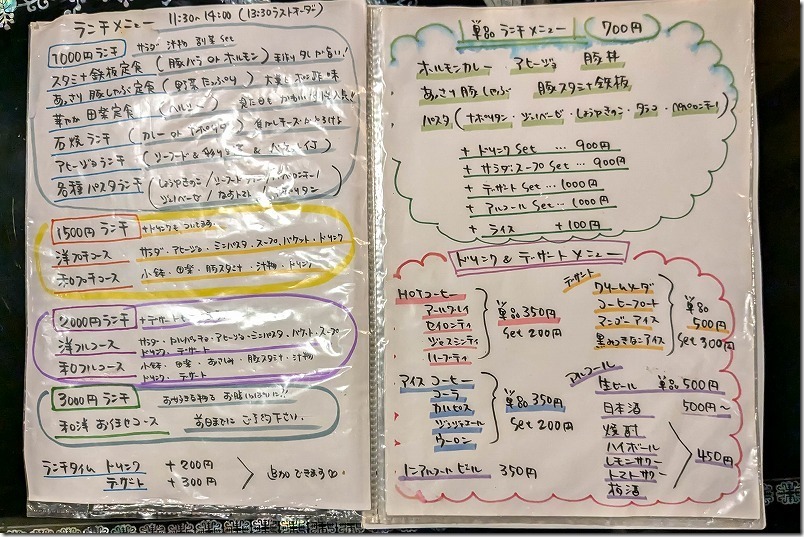 ランチメニュー 11:30〜14:00 (13:30ラストオーダー)
1000円ランチ サラダ 汁物 副菜 set
スタミナ鉄板定食 (豚バラ or ホルモン)
あっさり豚しゃぶ定食 (野菜たっぷり)
田楽定食 (ヘルシー)
石焼ランチ (カレー or ナポリタン)
アヒージョランチ (シーフード &
各種パスタランチ
1500円ランチ +ドリンクもついてます。
洋プチコース サラダ・アヒージョ・ミニパスタ・スープ・バケット・ドリンク
和プチコース 小鉢・田楽・豚スタミナ・汁物・ドリンク
2000円ランチ
洋フルコース サラダ・カルパッチョ・アヒージョ・ミニパスタ・バケット・スープ
ドリンク デザート
和フルコース 小鉢・田楽・おさしみ・豚スタミナ・汁物
ドリンク・デザート
3000円ランチ
和洋 お任せコース 前日までにご予約下さい。
ランチタイム ドリンク +200円
デザート +300円
追加できます
単品ランチメニュー 700円
ホルモンカレー アヒージョ 豚丼
あっさり豚しゃぶ 豚スタミナ鉄板
パスタ (ナポリタン・ジェノベーゼ・しょうゆきのこ・タラコ・ペペロンチーノ)
+ ドリンク Set … 900円
+ サラダ・スープ Set … 900円
+ デザート Set … 1000円
+ アルコール Set … 1000円
+ ライス +100円
ドリンク & デザートメニュー
HOTコーヒー
アールグレイ
セイロンティ
ジャスミンティ
ハーブティ
単品350円
Set 200円
アイスコーヒー
コーラ
カルピス
ジンジャエール
ウーロン
単品350円
Set 200円
ノンアルコールビール 350円
デザート
クリームソーダ
コーヒーフロート
マンゴーアイス
黒みつきなこアイス
単品
500円
Set 300円
アルコール
生ビール 単品500円
日本酒 500円〜
焼酎
ハイボール
レモンサワー
トマトサワー
梅酒
450円